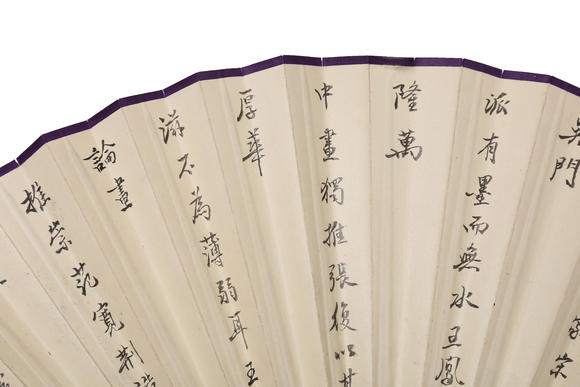 吳門
派有墨而無水王鳳
隆萬
中畫獨推張復以
厚華
滋不為薄弱耳王
論畫
推崇范寬荊